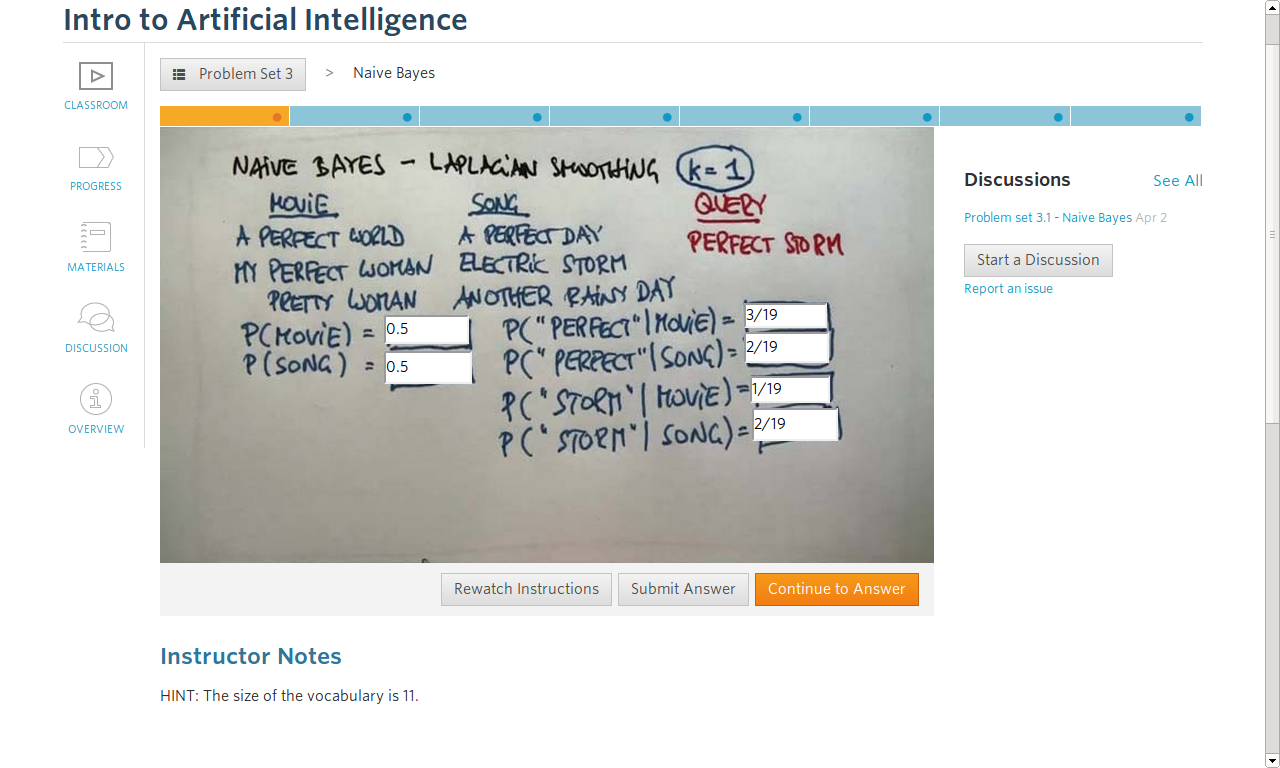 Intro to Artificial Intelligence
CLASSROOM
PROGRESS
MATERIALS
DISCUSSION
OVERVIEW
Problem Set 3 > Naive Bayes
NAIVE BAYES - LAPLACIAN SMOOTHING k=1
MOVIE SONG QUERY
A PERFECT WORLD A PERFECT DAY PERFECT STORM
MY PERFECT WOMAN ELECTRIC STORM
PRETTY WOMAN ANOTHER RAINY DAY
P(MOVIE) = 0.5
P(SONG) = 0.5
P("PERFECT"|MOVIE) = 3/19
P("PERFECT"|SONG) = 2/19
P("STORM"|MOVIE) = 1/19
P("STORM"|SONG) = 2/19
Rewatch Instructions Submit Answer Continue to Answer
Instructor Notes
HINT: The size of the vocabulary is 11.
Discussions See All
Problem set 3.1 - Naive Bayes Apr 2
Start a Discussion
Report an issue